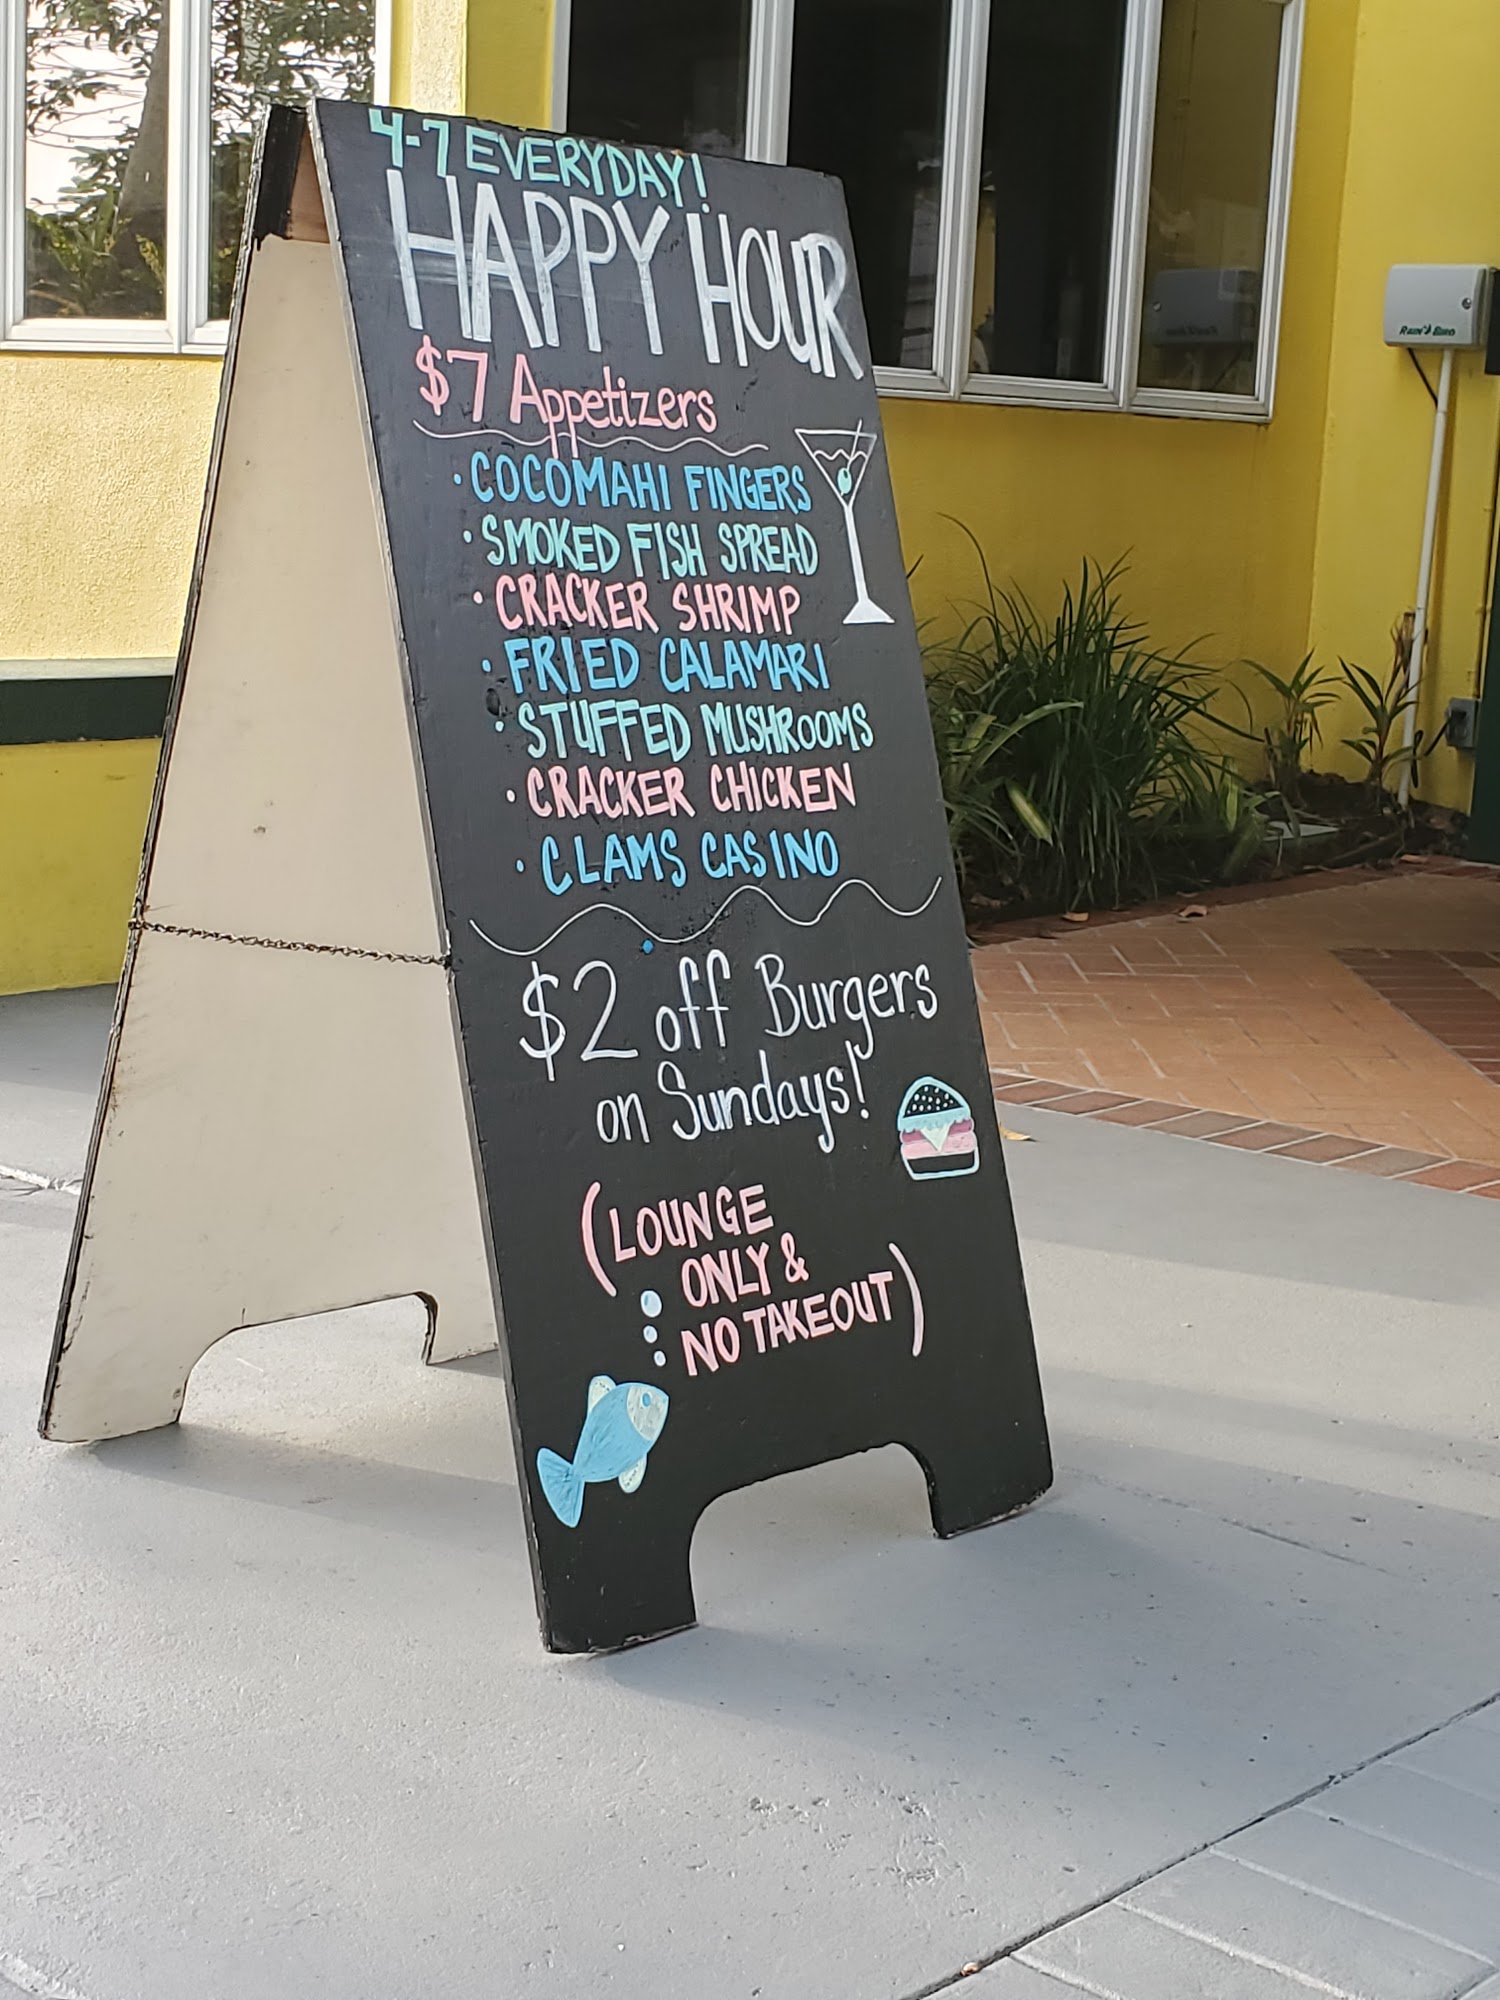 4-7 EVERYDAY!
HAPPY HOUR
$7 Appetizers
· COCOMAHI FINGERS
· SMOKED FISH SPREAD
· CRACKER SHRIMP
· FRIED CALAMARI
· STUFFED MUSHROOMS
· CRACKER CHICKEN
· CLAMS CASINO
$2 off Burgers
on Sundays!
(LOUNGE
ONLY &
NO TAKEOUT)
RAIN BIRD